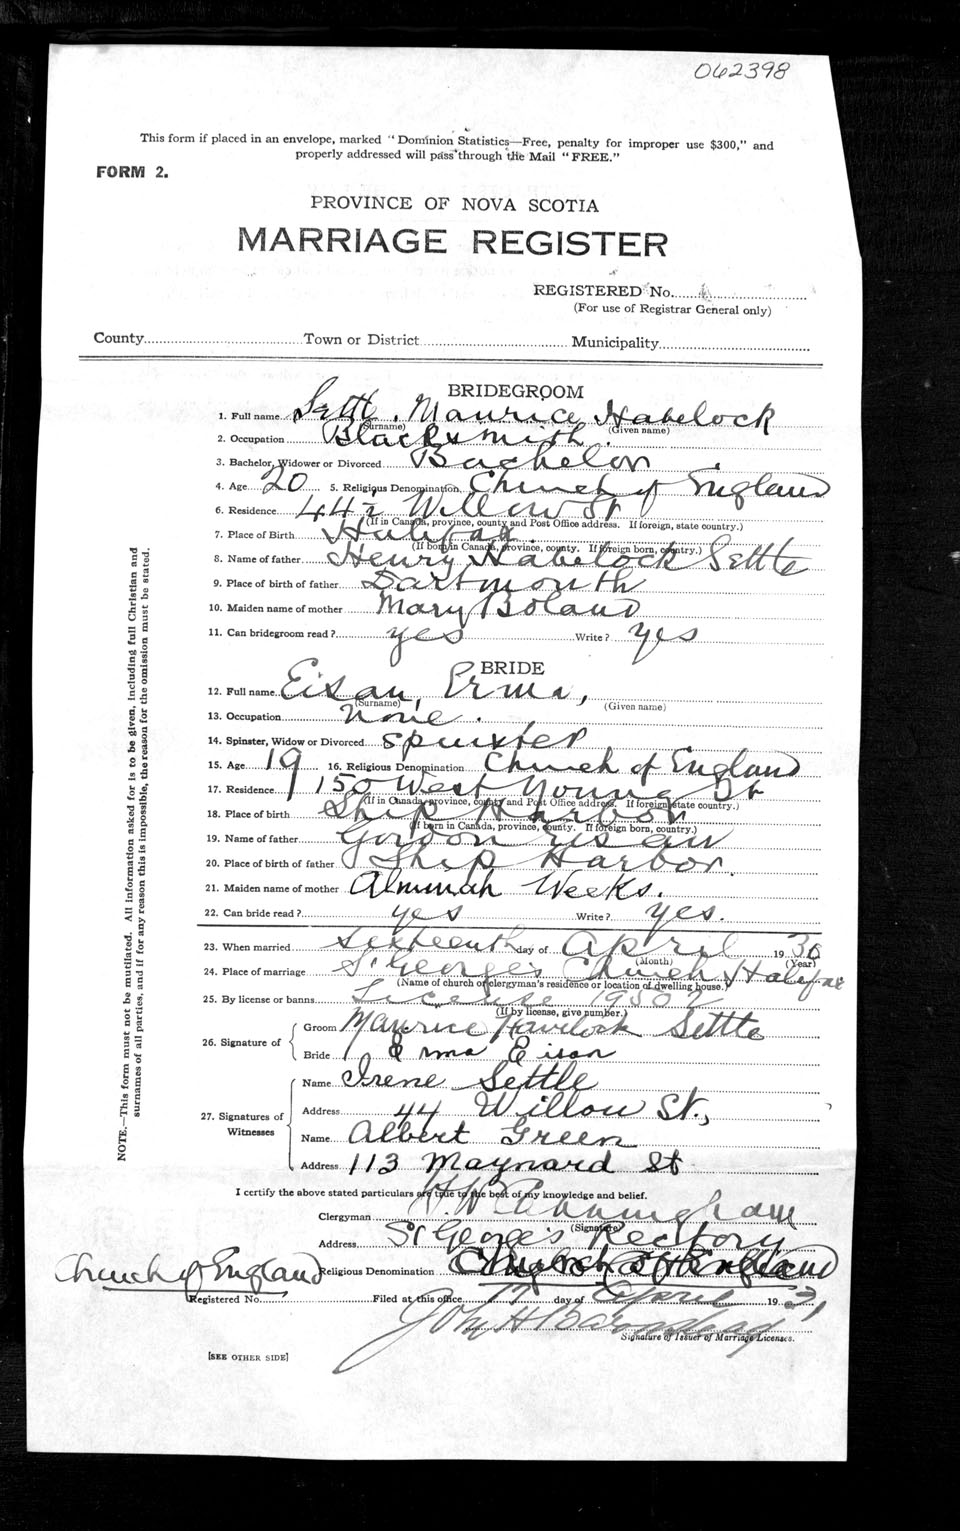 062398
This form if placed in an envelope, marked "Dominion Statistics—Free, penalty for improper use $300," and
properly addressed will pass through the Mail "FREE."
FORM 2.
PROVINCE OF NOVA SCOTIA
MARRIAGE REGISTER
REGISTERED No.
(For use of Registrar General only)
County Town or District Municipality
BRIDEGROOM
1. Full name Settle, Maurice Habelock
(Surname) (Given name)
2. Occupation Blacksmith.
3. Bachelor, Widower or Divorced Bachelor
4. Age 20 5. Religious Denomination Church of England
6. Residence 44½ Willow St
(If in Canada, province, county and Post Office address. If foreign, state country.)
7. Place of Birth Halifax.
(If born in Canada, province, county. If foreign born, country.)
8. Name of father Henry Habelock Settle
9. Place of birth of father Dartmouth
10. Maiden name of mother Mary Boland
11. Can bridegroom read? yes Write? yes
BRIDE
12. Full name Eisan, Erma,
(Surname) (Given name)
13. Occupation None.
14. Spinster, Widow or Divorced Spinster
15. Age 19 16. Religious Denomination Church of England
17. Residence 150 West Young St
(If in Canada, province, county and Post Office address. If foreign state country.)
18. Place of birth Ship Harbor
(If born in Canada, province, county. If foreign born, country.)
19. Name of father Gordon Eisan
20. Place of birth of father Ship Harbor.
21. Maiden name of mother Almirah Weeks.
22. Can bride read? yes Write? yes.
23. When married Sixteenth day of April 1930
(Month) (Year)
24. Place of marriage St George's Church Halifax
(Name of church or clergyman's residence or location of dwelling house.)
25. By license or banns License 19502
(If by license, give number.)
26. Signature of
Groom Maurice Havilock Settle
Bride Erma Eisan
27. Signatures of Witnesses
Name Irene Settle
Address 44 Willow St,
Name Albert Green
Address 113 Maynard St
I certify the above stated particulars are true to the best of my knowledge and belief.
Clergyman H.W. Cunningham
(Signature)
Address St George's Rectory
Church of England Religious Denomination Church of England
Registered No. Filed at this office 17 day of April 193
John H Barnstead
Signature of Issuer of Marriage Licenses.
[SEE OTHER SIDE]
NOTE.—This form must not be mutilated. All information asked for is to be given, including full Christian and
surnames of all parties, and if for any reason this is impossible, the reason for the omission must be stated.